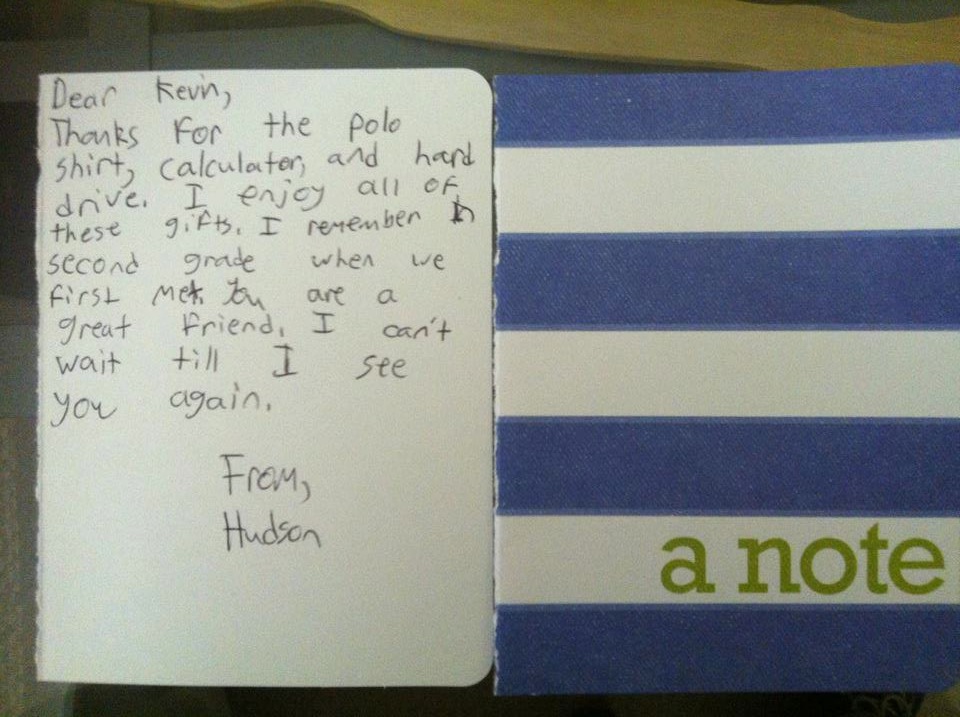 Dear Kevin,
Thanks for the polo
shirt, calculator, and hard
drive. I enjoy all of
these gifts. I remember in
second grade when we
first met. You are a
great friend. I can't
wait till I see
you again.
From,
Hudson
a note